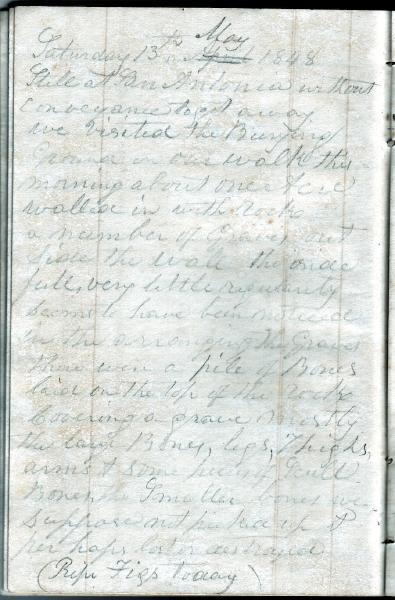 May
Saturday 13th April 1848
Still at San Antonia without
conveyance to get away
we visited the Burying
Ground in our walk this
morning about one Acre
walled in with rock
a number of Graves out
side the wall the inside
full, very little regularity
seems to have been noticed
in the arranging the Graves
there were a pile of Bones
laid on the top of the rock
Covering a grave Mostly
the large Bones, legs, Thighs,
arms & some pieces of Scull
Bones the Smaller bones we
suppose not picked up &
perhaps lost or destroyed
(Ripe Figs today)